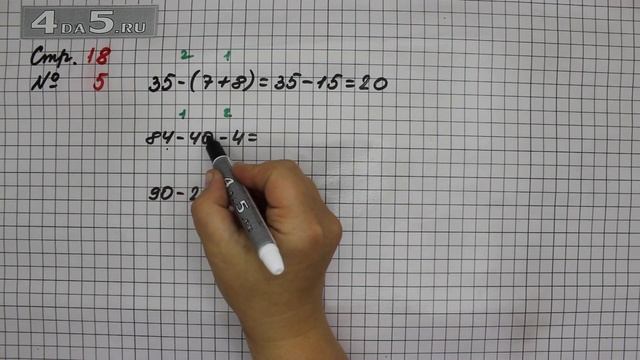 4DA5.RU
Стр. 18
2 1
№ 5 35-(7+8)=35-15=20
1 2
84-40-4=
90-2
4 5